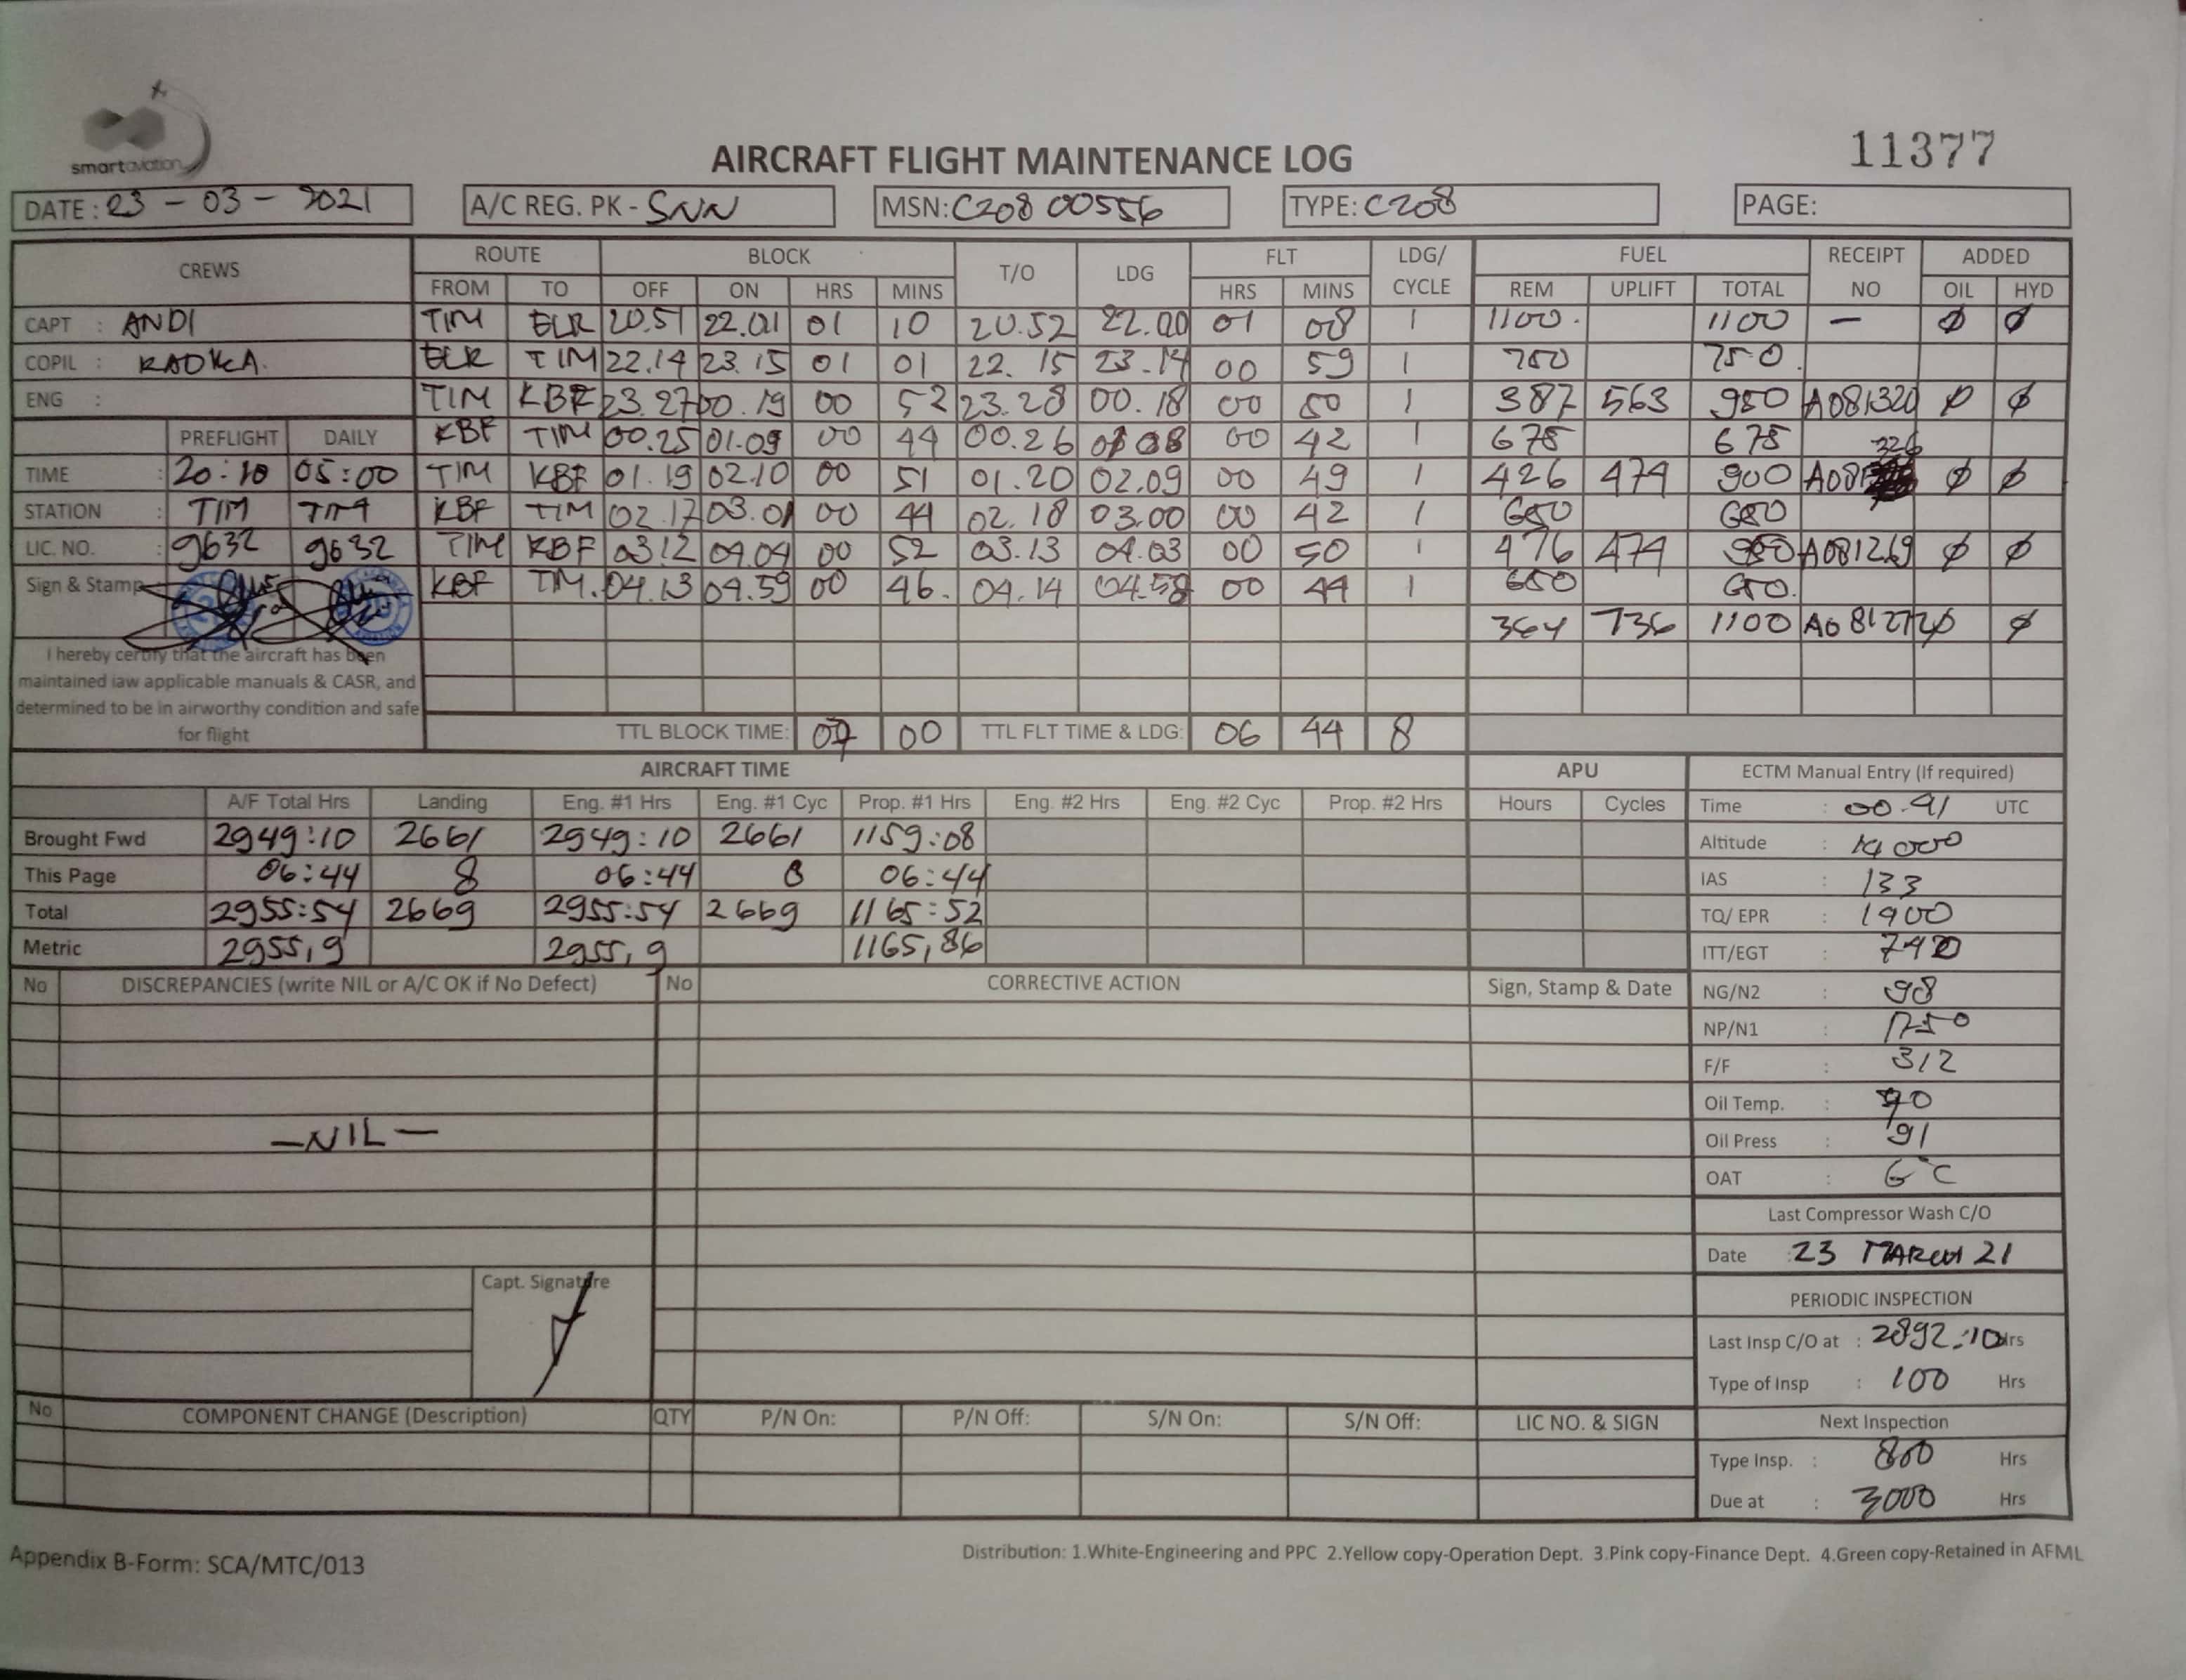 smartaviation
AIRCRAFT FLIGHT MAINTENANCE LOG
11377
DATE : 23 - 03 - 2021 A/C REG. PK - SNN MSN: C208 00556 TYPE: C208 PAGE:
CREWS ROUTE BLOCK T/O LDG FLT LDG/ CYCLE FUEL RECEIPT NO ADDED
FROM TO OFF ON HRS MINS HRS MINS REM UPLIFT TOTAL OIL HYD
CAPT : ANDI TIM ELR 20.51 22.01 01 10 20.52 22.00 01 08 1 1100. 1100 — ∅ ∅
COPIL : ELR TIM 22.14 23.15 01 01 22.15 23.14 00 59 1 750 750.
ENG : TIM KBF 23.27 00.19 00 52 23.28 00.18 00 50 1 387 563 950 A081320 ∅ ∅
PREFLIGHT DAILY KBF TIM 00.25 01.09 00 44 00.26 01 08 00 42 1 675 675
TIME : 20:10 05:00 TIM KBF 01.19 02.10 00 51 01.20 02.09 00 49 1 426 474 900 A081 326 ∅ ∅
STATION : TIM TIM KBF TIM 02.17 03.01 00 44 02.18 03.00 00 42 1 650 650
LIC. NO. : 9632 9632 TIM KBF 03.12 04.04 00 52 03.13 04.03 00 50 1 476 474 950 A081269 ∅ ∅
Sign & Stamp KBF TIM. 04.13 04.59 00 46. 04.14 04.58 00 44 1 650 650.
364 736 1100 A081272 ∅ ∅
I hereby certify that the aircraft has been
maintained iaw applicable manuals & CASR, and
determined to be in airworthy condition and safe
for flight
TTL BLOCK TIME: 07 00 TTL FLT TIME & LDG: 06 44 8
AIRCRAFT TIME APU ECTM Manual Entry (If required)
A/F Total Hrs Landing Eng. #1 Hrs Eng. #1 Cyc Prop. #1 Hrs Eng. #2 Hrs Eng. #2 Cyc Prop. #2 Hrs Hours Cycles Time : 00.41 UTC
Brought Fwd 2949:10 2661 2949:10 2661 1159:08 Altitude : 14 000
This Page 06:44 8 06:44 8 06:44 IAS : 133
Total 2955:54 2669 2955:54 2669 1165:52 TQ/ EPR : 1400
Metric 2955,9 2955,9 1165,86 ITT/EGT : 740
No DISCREPANCIES (write NIL or A/C OK if No Defect) No CORRECTIVE ACTION Sign, Stamp & Date NG/N2 : 98
NP/N1 : 1750
F/F : 312
Oil Temp. : 70
Oil Press : 91
— NIL —
OAT : 6°C
Last Compressor Wash C/O
Date : 23 MARCH 21
Capt. Signature
PERIODIC INSPECTION
Last Insp C/O at : 2892:10 Hrs
Type of Insp : 100 Hrs
No COMPONENT CHANGE (Description) QTY P/N On: P/N Off: S/N On: S/N Off: LIC NO. & SIGN Next Inspection
Type Insp. : 800 Hrs
Due at : 3000 Hrs
Appendix B-Form: SCA/MTC/013
Distribution: 1.White-Engineering and PPC 2.Yellow copy-Operation Dept. 3.Pink copy-Finance Dept. 4.Green copy-Retained in AFML